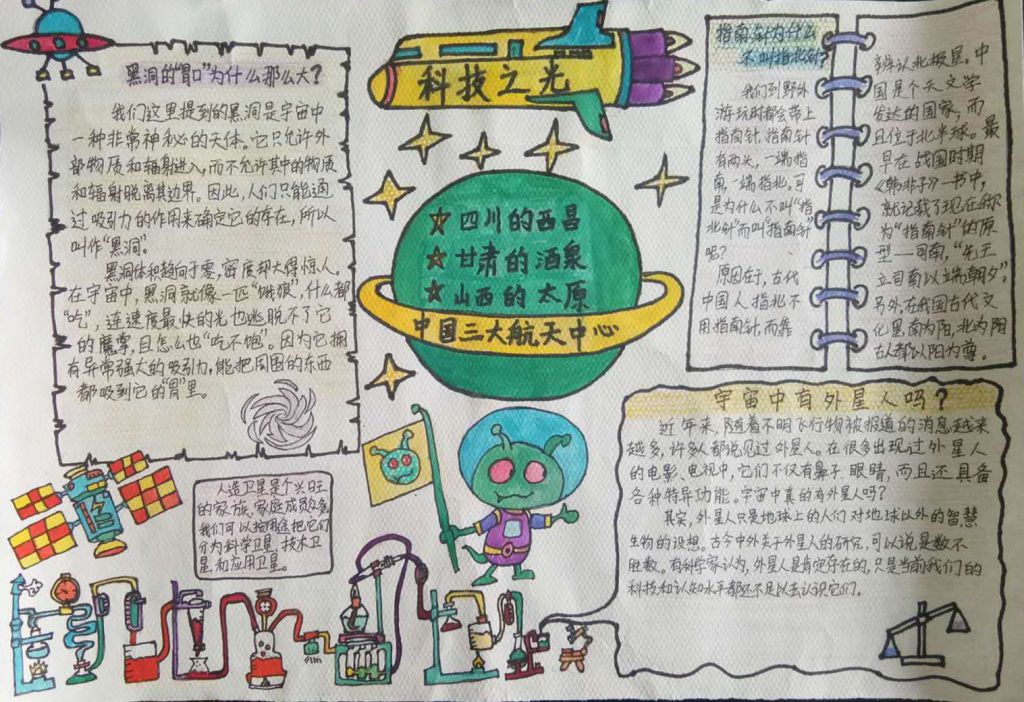 科技之光
黑洞的“胃口”为什么那么大?
我们这里提到的黑洞是宇宙中
一种非常神秘的天体。它只允许外
部物质和辐射进入,而不允许其中的物质
和辐射脱离其边界。因此,人们只能通
过吸引力的作用来确定它的存在,所以
叫作“黑洞”。
黑洞体积趋向于零,密度却大得惊人。
在宇宙中,黑洞就像一匹“饿狼”,什么都
“吃”,连速度最快的光也逃脱不了它
的魔掌,且怎么也“吃不饱”。因为它拥
有异常强大的吸引力,能把周围的东西
都吸到它的“胃”里。
四川的西昌
甘肃的酒泉
山西的太原
中国三大航天中心
指南针为什么
不叫指北针?
我们到野外
游玩时都会带上
指南针,指南针
有两头,一端指
南,一端指北。可
是为什么不叫“指
北针”而叫“指南针”
呢?
原因在于,古代
中国人指北不
用指南针,而靠
辨认北极星。中
国是个天文学
发达的国家,而
且位于北半球。最
早在战国时期
《韩非子》一书中,
就记载了现在称
为“指南针”的原
型——司南,“先王
立司南以端朝夕”。
另外,在我国古代文
化里南为阳,北为阴
古人都以阳为尊。
宇宙中有外星人吗?
近年来,随着不明飞行物被报道的消息越来
越多,许多人都说见过外星人。在很多出现过外星人
的电影、电视中,它们不仅有鼻子眼睛,而且还具备
各种特异功能。宇宙中真的有外星人吗?
其实,外星人只是地球上的人们对地球以外的智慧
生物的设想。古今中外关于外星人的研究,可以说是数不
胜数。有科学家认为,外星人是肯定存在的,只是当前我们的
科技和认知水平都还不足以去认识它们。
人造卫星是个兴旺
的家族,家庭成员众多,
我们可以按用途把它们
分为科学卫星、技术卫
星和应用卫星。